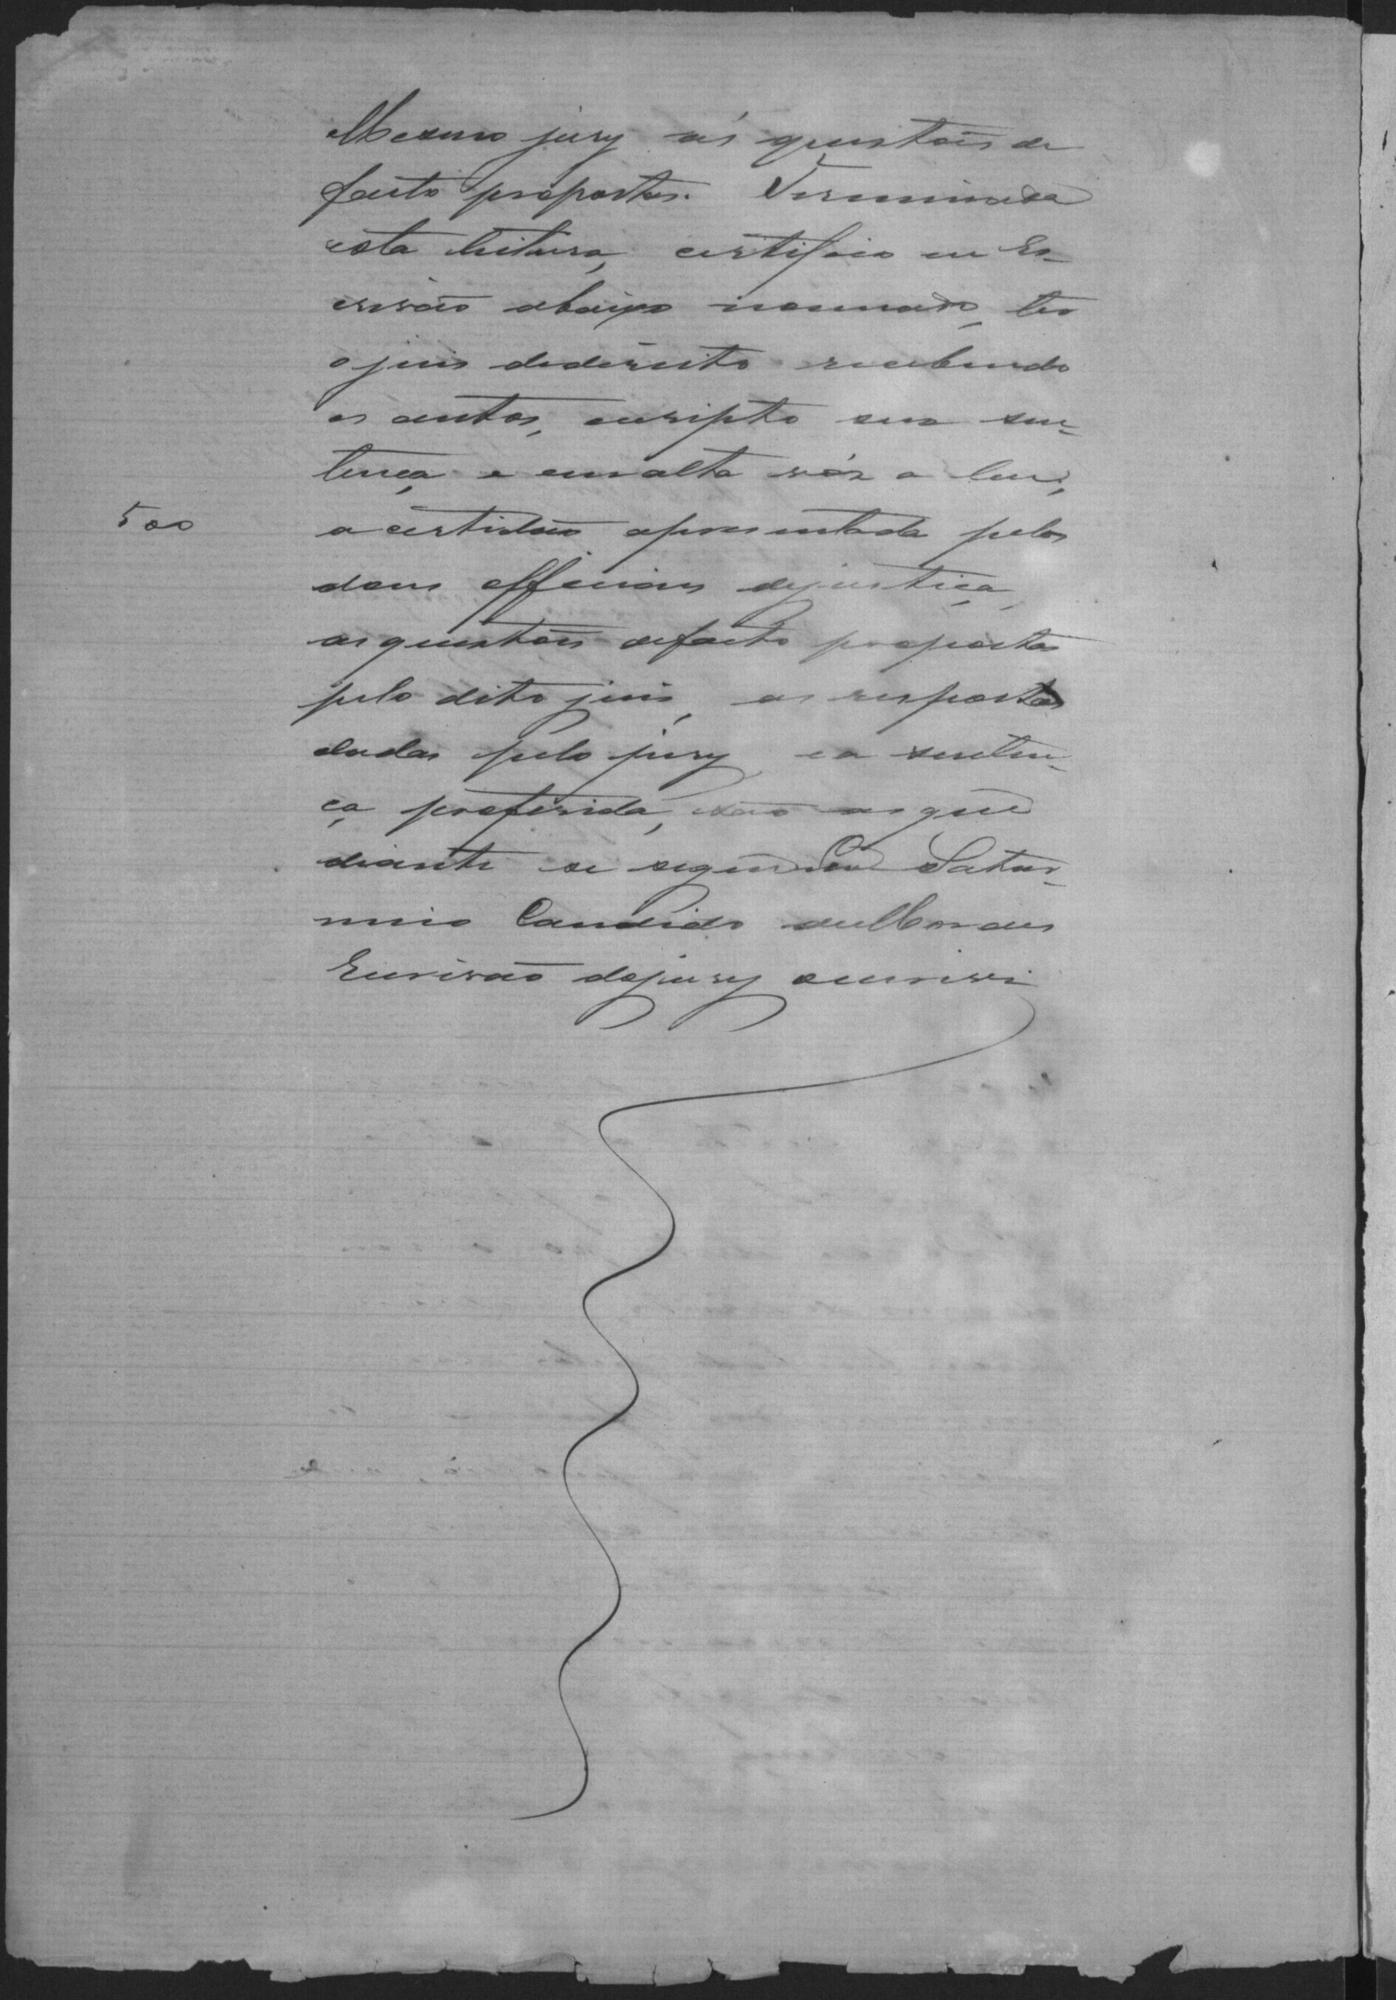 Mesmo jury ás questões de
facto propostas. Terminada
esta leitura, certifico eu Es-
crivão abaixo nomeado, ter
o juis dedireito recebendo
os autos, escripto sua sen-
tença e em alta vóz a leu,
500 a certidão apresentada pelos
dous officiaes dejustiça,
as questões defacto propostas
pelo dito juis, as respostas
dadas pelo jury, e a senten-
ça proferida, são as que
diante se seguem Eu Satur-
nino Candido de Moraes
Escrivão dojury escrevi